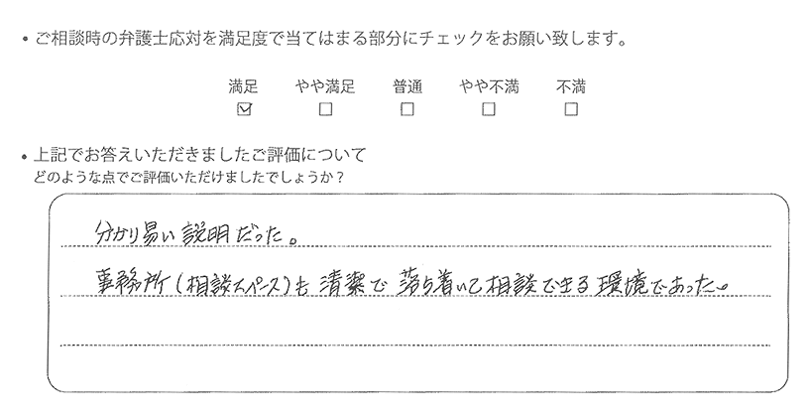 • ご相談時の弁護士応対を満足度で当てはまる部分にチェックをお願い致します。
満足 やや満足 普通 やや不満 不満
• 上記でお答えいただきましたご評価について
どのような点でご評価いただけましたでしょうか？
分かり易い説明だった。
事務所(相談スペース)も清潔で落ち着いて相談できる環境であった。